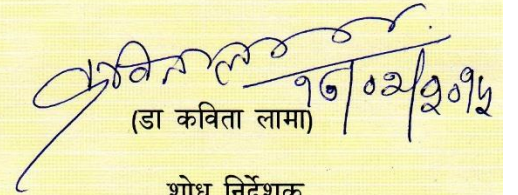 कविता लामा
१७/०२/२०१५
(डा कविता लामा)
शोध निर्देशक